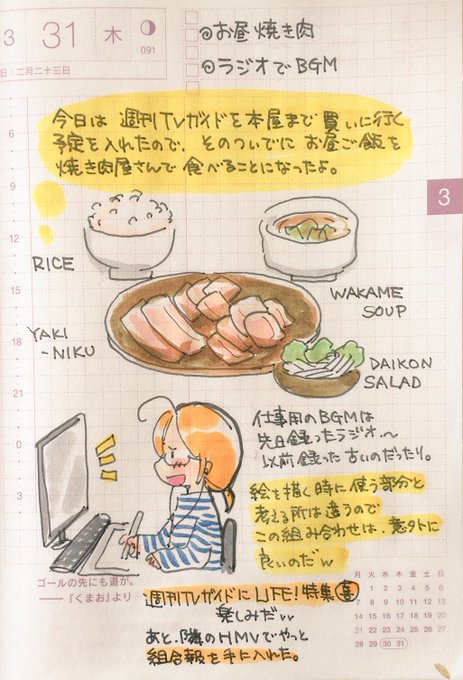 3 31 木 091
日:二月二十三日
◎お昼焼き肉
◎ラジオでBGM
今日は 週刊TVガイドを本屋まで買いに行く
予定を入れたので、そのついでに お昼ご飯を
焼き肉屋さんで 食べることになったよ。
3
6
9
12
15
18
21
0
3
RICE
WAKAME
SOUP
YAKI
-NIKU
DAIKON
SALAD
仕事用のBGMは
先日録ったラジオ〜
以前録った古いのだったり。
絵を描く時に使う部分と
考える所は違うので
この組み合わせは、意外に
良いのだw
ゴールの先にも道が。
――『くまお』より
週刊TVガイドにLIFE!特集喜
楽しみだw
あと、隣のHMVでやっと
組合報を手に入れた。
月 火 水 木 金 土 日
1 2 3 4 5 6
7 8 9 10 11 12 13
14 15 16 17 18 19 20
21 22 23 24 25 26 27
28 29 30 31